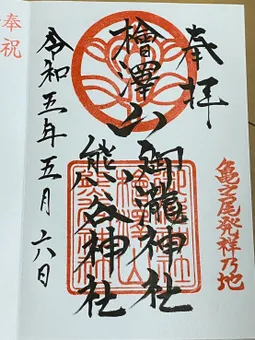 奉拝
檜澤山
御瀧神社
熊谷神社
令和五年五月六日
亀之尾発祥乃地
奉祝